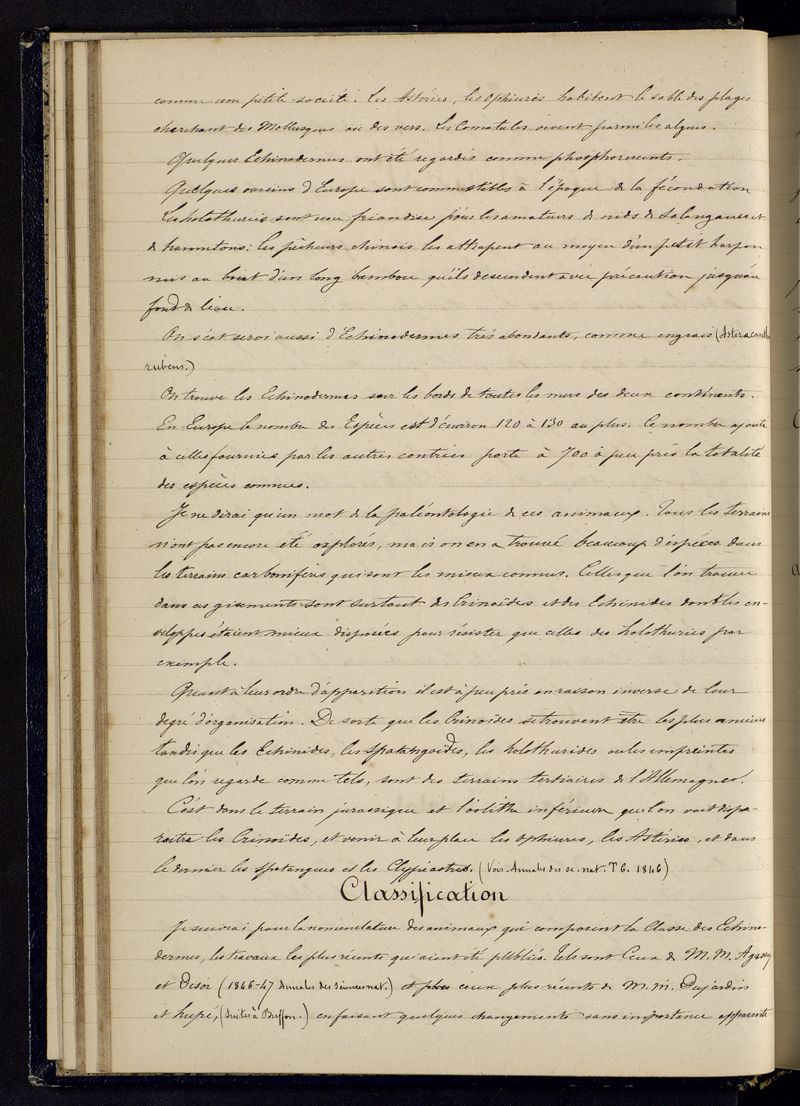 comme une petite société. Les Astéries, les Ophiures habitent le sable des plages
cherchant des Mollusques ou des vers. Les Comatules vivent parmi les algues.
Quelques Echinodermes ont été regardés comme phosphorescents.
Quelques oursins d'Europe sont comestibles à l'époque de la fécondation
Les holothuries sont une friandise pour les amateurs de nids de Salanganes et
de hannetons: les pêcheurs chinois les attrapent au moyen d'un petit harpon
mis au bout d'un long bambou qu'ils descendent avec précaution jusqu'au
fond de l'eau.
On s'est servi aussi d'Echinodermes très abondants, comme engrais (Asteracanth
rubens.)
On trouve les Echinodermes sur les bords de toutes les mers des deux continents.
En Europe le nombre des Espèces est d'environ 120 à 130 au plus. Ce nombre ajouté
à celles fournies par les autres contrées porte à 700 à peu près la totalité
des espèces connues.
Je ne dirai qu'un mot de la paléontologie de ces animaux. Tous les terrains
n'ont pas encore été explorés, mais on en a trouvé beaucoup d'espèces dans
les terrains carbonifères qui sont les mieux connus. Celles que l'on trouve
dans ces gisements sont surtout des Crinoïdes et des Echinides dont les en-
veloppes étaient mieux disposées pour résister que celles des holothuries par
exemple.
Quant à leur ordre d'apparition il est à peu près en raison inverse de leur
degré d'organisation. De sorte que les Crinoïdes se trouvent être les plus anciens
tandis que les Echinides, les spatangoïdes, les holothurides ou les empreintes
que l'on regarde comme tels, sont des terrains tertiaires de l'Allemagne.
C'est dans le terrain jurassique et l'oolithe inférieure que l'on voit dispa-
raitre les Crinoïdes, et venir à leur place les Ophiures, les Astéries, et dans
le dernier les spatangues et les Clypéastres. (Voir. Annales des sc. nat. T 6. 1846)
Classification
Je suivrai pour la nomenclature des animaux qui composent la Classe des Echino-
dermes, les travaux les plus récents qui aient été publiés. Tels sont Ceux de M.M. Agassiz
et Desor (1846-47 Annales des Sciences nat.) et ceux plus récents de M.M. Dujardin
et hupé, (Suites à Buffon.) en faisant quelques changements sans importance apparente